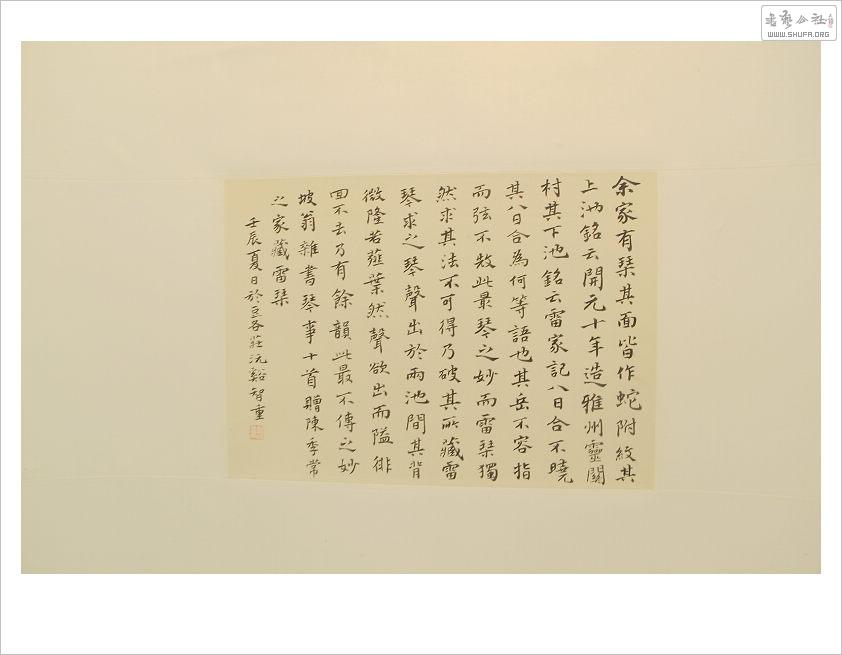 余家有琹其面皆作蛇附紋其
上池銘云開元十年造雅州靈關
村其下池銘云雷家記八日合不曉
其八日合為何等語也其岳不容指
而弦不㪇此最琴之妙而雷琹獨
然求其法不可得乃破其所藏雷
琴求之琴聲出於兩池間其背
微隆若薤葉然聲欲出而隘徘
回不去乃有餘韻此最不傳之妙
坡翁雜書琴事十首贈陳季常
之家藏雷琹
壬辰夏日於巨各莊沅谿智重
書藝公社
WWW.SHUFA.ORG